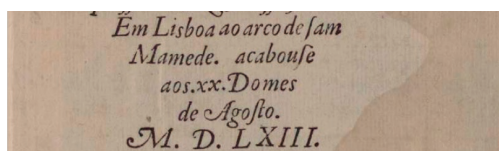 Em Lisboa ao arco de ſam
Mamede. acabouſe
aos.xx.Do mes
de Agoſto.
M. D. LXIII.